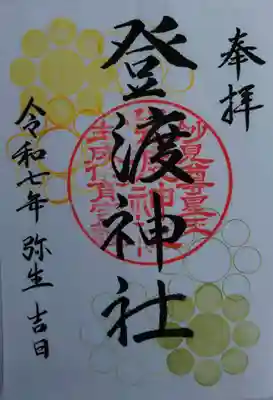 奉拝
登渡神社
令和七年 弥生 吉日